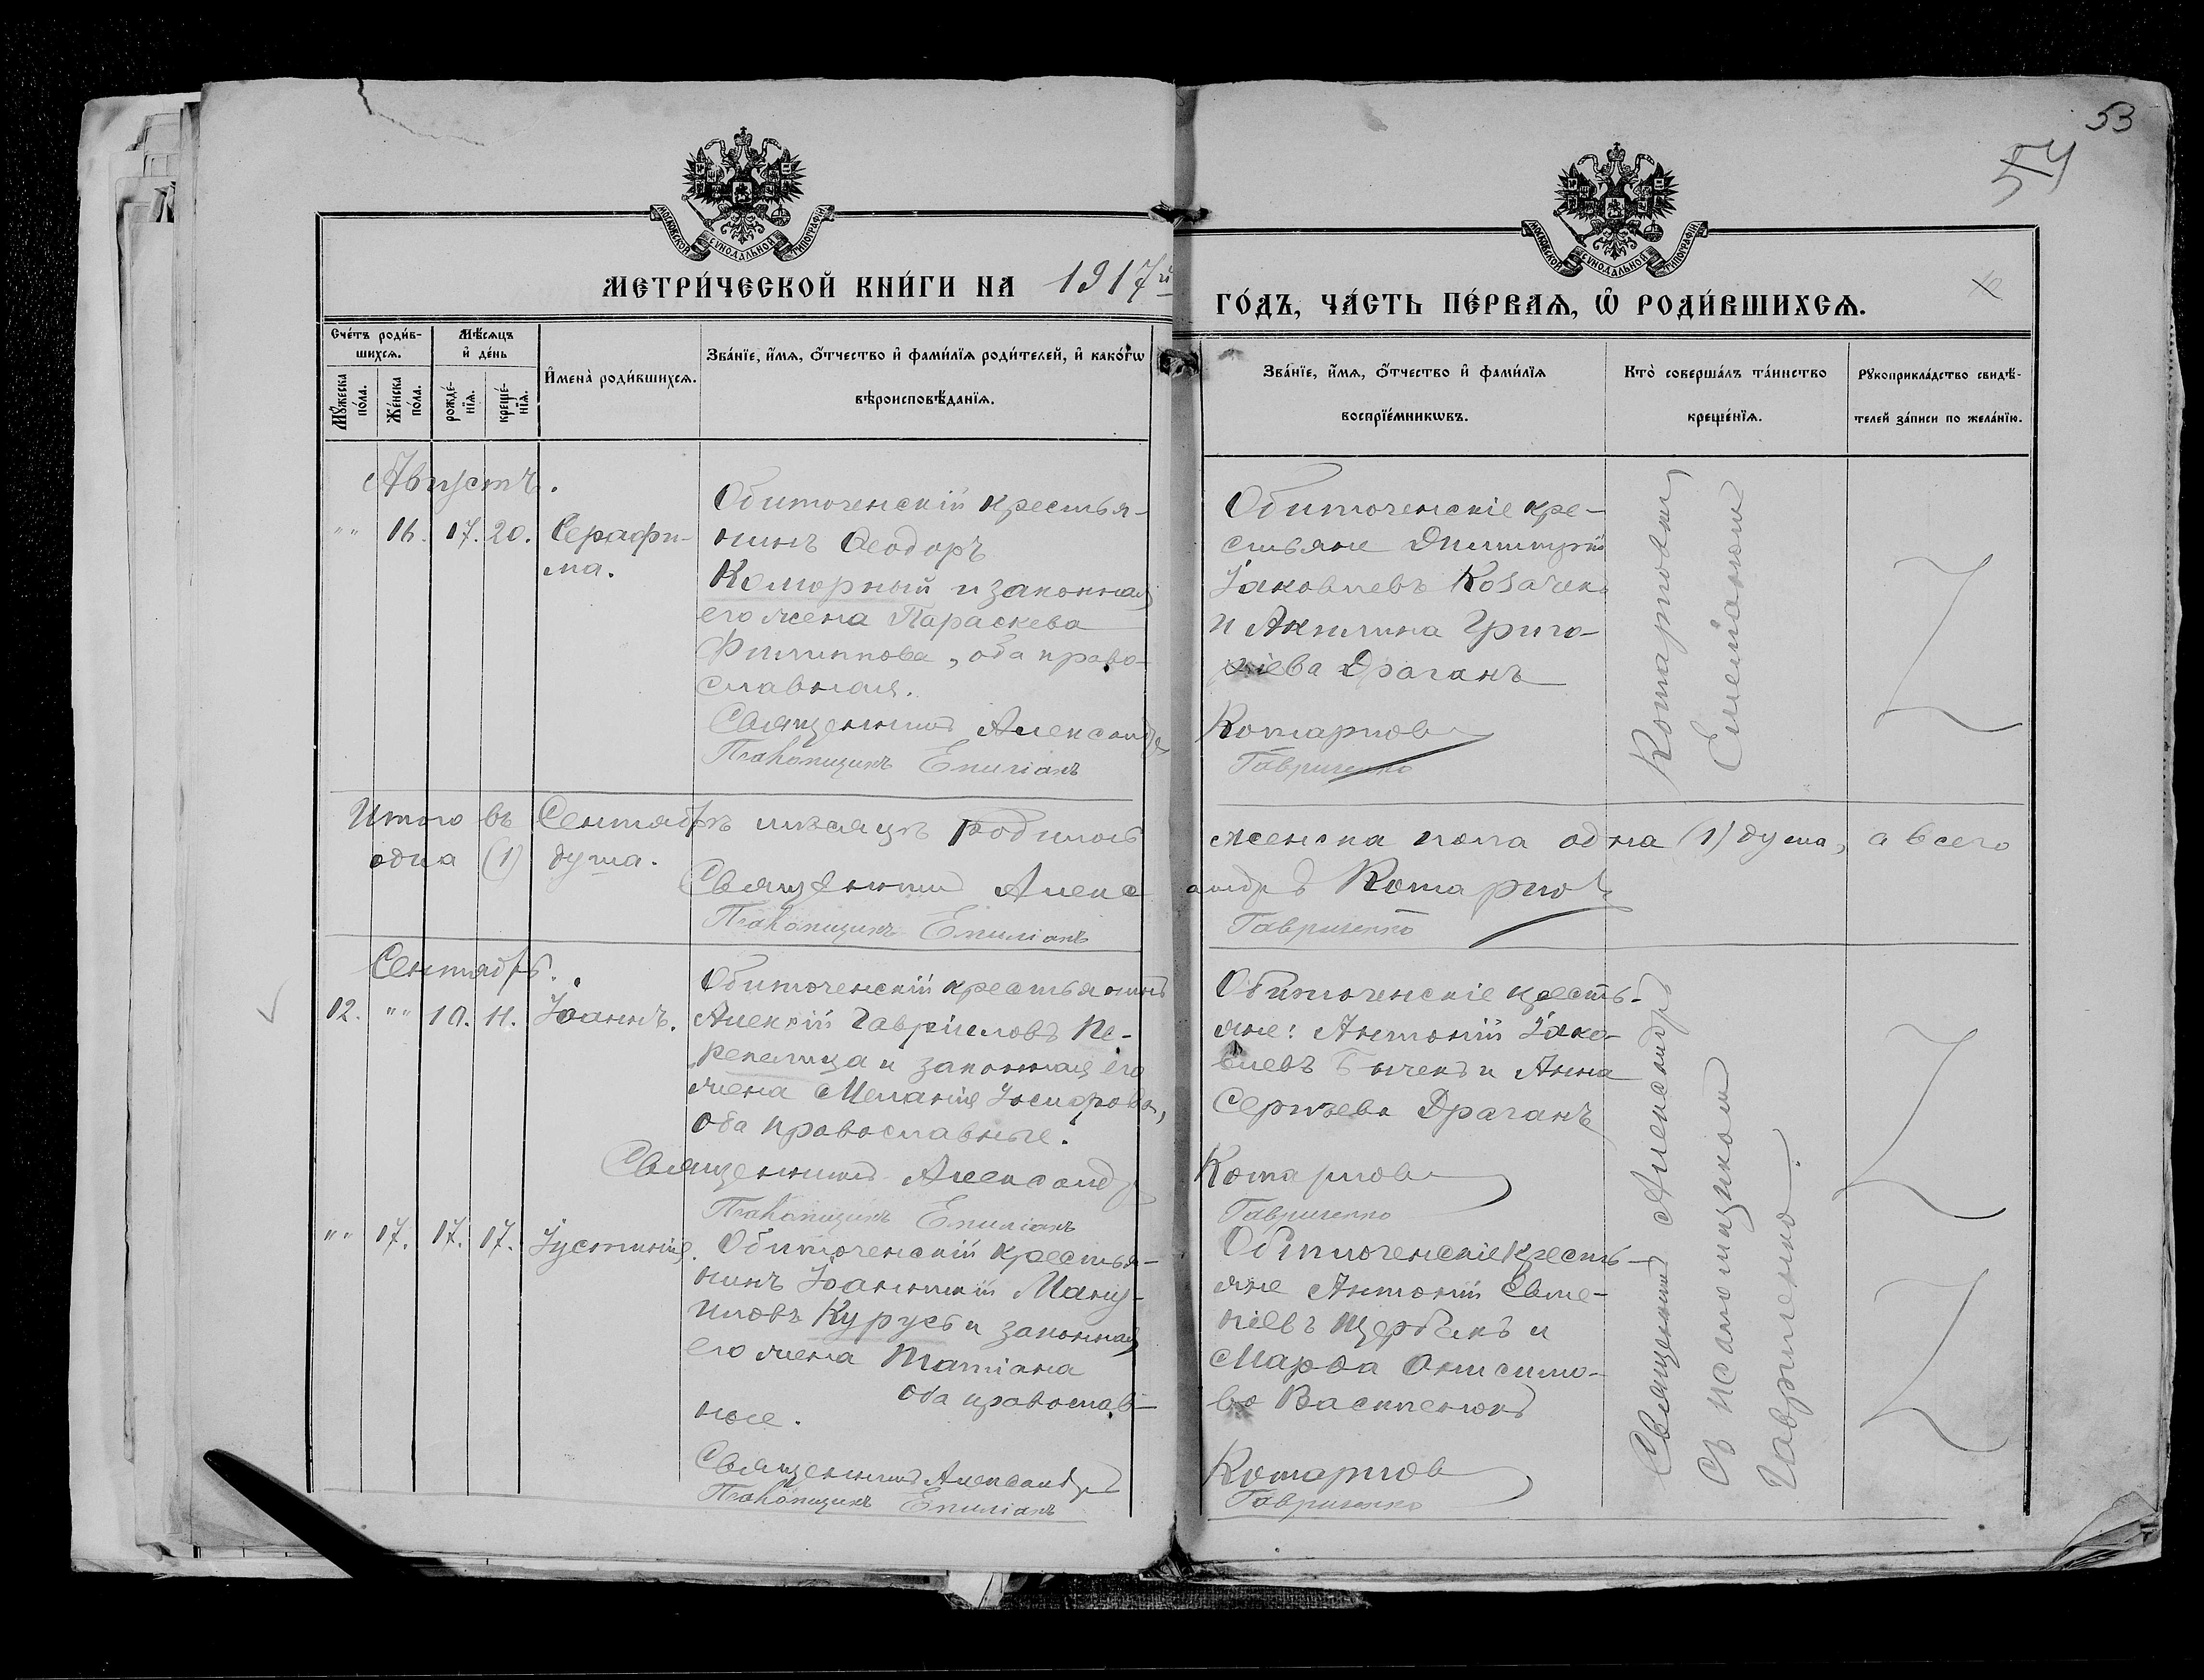 53
54
МОСКОВСКОЙ СѴНОДАЛЬНОЙ ТИПОГРАФІИ
МОСКОВСКОЙ СѴНОДАЛЬНОЙ ТИПОГРАФІИ
МЕТРИ́ЧЕСКОЙ КНИ́ГИ НА 1917й
ГО́ДЪ, ЧА́СТЬ ПЕ́РВАѦ, Ѡ҆ РОДИ́ВШИХСѦ.
Сче́тъ роди́в-
шихсѧ.
Мꙋ́жеска по́ла.
Же́нска по́ла.
Мѣ́сѧцъ
и҆ де́нь
рожде́-
нїѧ.
креще́-
нїѧ.
И҆мена̀ роди́вшихсѧ.
Зва́нїе, и҆́мѧ, ѻ҆́тчество и҆ фами́лїѧ роди́телей, и҆ како́гѡ
вѣроисповѣ́данїѧ.
Зва́нїе, и҆́мѧ, ѻ҆́тчество и҆ фами́лїѧ
воспрїе́мникѡвъ.
Кто̀ соверша́лъ та́инство
креще́нїѧ.
Рꙋкоприкла́дство свидѣ́-
телей за́писи по жела́нїю.
Августъ.
" " 16. 17. 20. Серафи-
ма.
Обиточенскій крестья-
нинъ Ѳеодоръ
Коморный и законная
его жена Параскева
Филиппова, оба право-
славная.
Священникъ Александр
Псаломщикъ Емиліанъ
Обиточенскіе кре-
стьяне Димитрій
Іаковлевъ Козачекъ
и Акилина Григо-
ріева Драганъ
Котарлов
Гавриленко
Емеліаномъ
Итого въ Сентябрѣ мѣсяцѣ родилось
женска пола одна (1) душа, а всего
одна (1) душа.
Священникъ Алекс
андръ Котарло
Псаломщикъ Емиліанъ
Гавриленко
Сентябрь.
12. " " 10. 11. Іоаннъ.
Обиточенскій крестьянинъ
Алексій Гавріиловъ Пе-
репелица и законная его
жена Меланія Іосифова,
оба православные.
Священникъ Александр
Псаломщикъ Емиліанъ
Обиточенскіе кресть-
яне: Антоній Іако-
влевъ Бычекъ и Анна
Сергіева Драганъ
Котарлов
Гавриленко
" " 17. 17. 17. Іустинія.
Обиточенскій крестья-
нинъ Іоанникій Ману-
иловъ Курусь и законная
его жена Татіана
оба православ-
ные.
Священникъ Александръ
Псаломщикъ Емиліанъ
Обиточенскіе кресть-
яне Антоній Евме-
ніевъ Щербакъ и
Марѳа Онисимо-
ва Василенкова
Котарлов
Гавриленко
Священникъ Александръ
съ псаломщикомъ
Гавриленко.